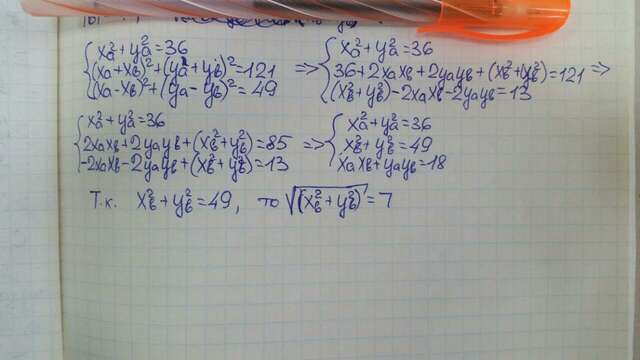 { xₐ²+yₐ²=36
(xₐ+xв)²+(yₐ+yв)²=121
(xₐ-xв)²+(yₐ-yв)²=49 =>
{ xₐ²+yₐ²=36
36+2xₐxв+2yₐyв+(xв²+yв²)=121
(xв²+yв²)-2xₐxв-2yₐyв=13 =>
{ xₐ²+yₐ²=36
2xₐxв+2yₐyв+(xв²+yв²)=85
-2xₐxв-2yₐyв+(xв²+yв²)=13 =>
{ xₐ²+yₐ²=36
xв²+yв²=49
xₐxв+yₐyв=18
Т.к. xв²+yв²=49, то √(xв²+yв²)=7